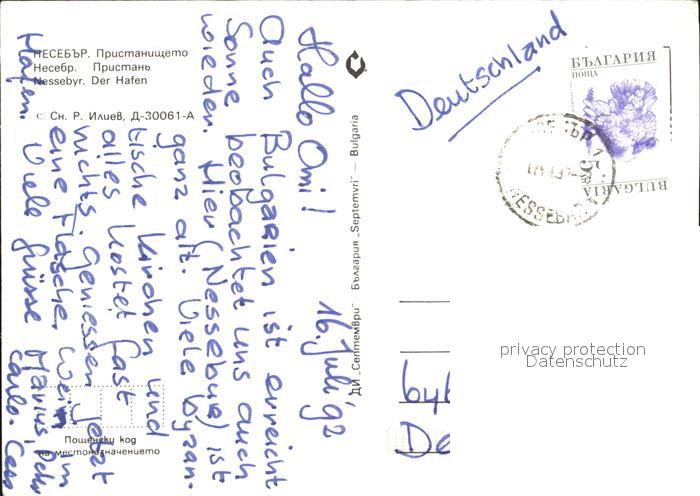 НЕСЕБЪР. Пристанището
Несебр. Пристань
Nessebyr. Der Hafen
© Сн. Р. Илиев, Д-30061-А
Hallo Omi! 16. Juli '92
Auch Bulgarien ist erreicht
Sonne beobachtet uns auch
wieder. Hier (Nessebur) ist
ganz alt. Viele byzan-
tische Kirchen und
alles kostet fast
nichts. Geniessen jetzt
eine Flasche Wein im
Hafen. Viele Grüsse Marius,
Carlo.
Пощенски код
на местоназначението
ДИ „Септември" — България „Septemvri" — Bulgaria
Deutschland
БЪЛГАРИЯ
ПОЩА
5
BULGARIA
NESSEBAR
privacy protection
Datenschutz
64
De